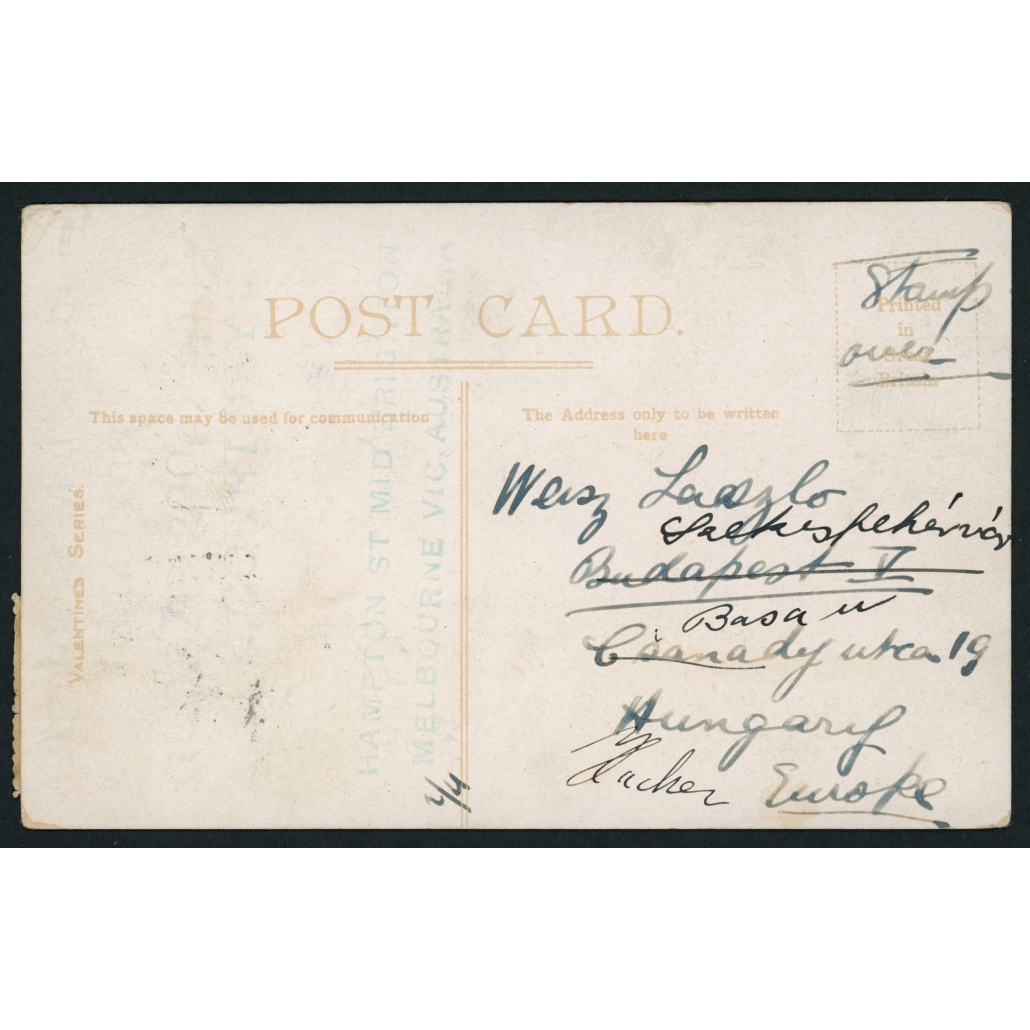 POST CARD.
Stamp
over
Printed
in
Britain
This space may be used for communication
The Address only to be written
here
VALENTINES SERIES.
HAMPTON ST MID BRIGHTON
MELBOURNE VIC. AUSTRALIA
Weisz Laszlo
Szekesfehérvár
Budapest V
Basa u
Csanady utca 19
Hungary
Europe
2/4